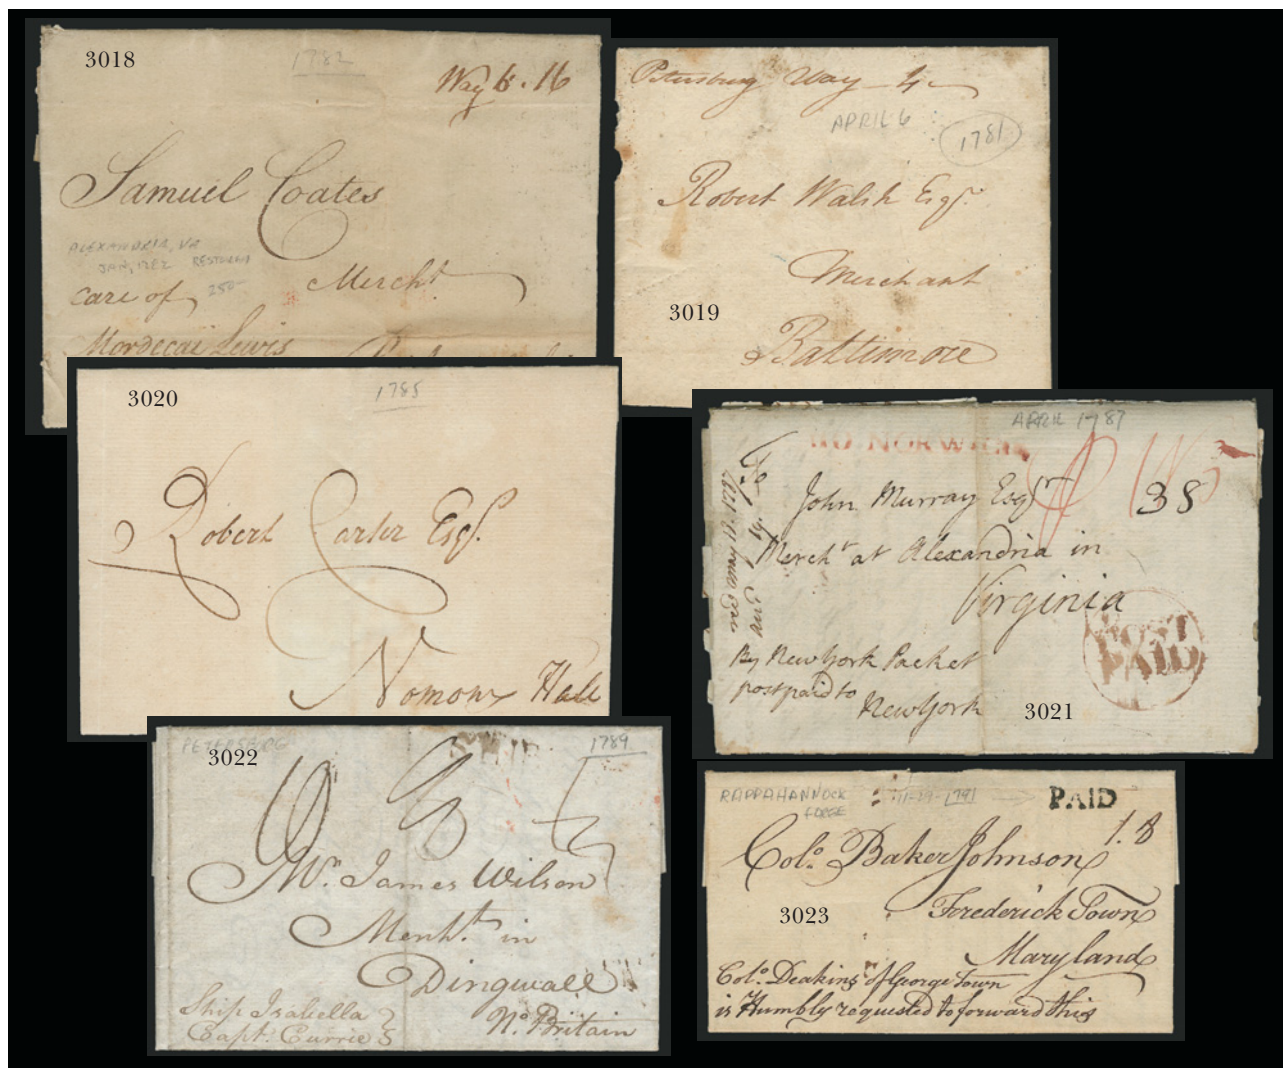 3018
1782
Way 6 . 16
Samuel Coates
ALEXANDRIA, VA
JAN, 1782 RESTORED
250-
Mercht
care of
Mordecai Lewis
Petersburg Way 4
APRIL 6
1781
Robert Walsh Esqr.
Merchant
3019
Baltimore
3020
1785
Robert Carter Esqr.
Nomony Hall
APRIL 1787
NORWICH
38
John Murray Esqr
Mercht at Alexandria in
Virginia
POST
PAID
By New York Packet
postpaid to
New York
3021
PETERSBURG
SHIP
1789
3022
Mr. James Wilson
Mercht. in
Dingwall
No. Britain
Ship Isabella
Capt. Currie
RAPPAHANNOCK
FORGE
1791
PAID
1.8
Colo. Baker Johnson
3023
Frederick Town
Maryland
Colo. Deakins of George Town
is Humbly requested to forward this